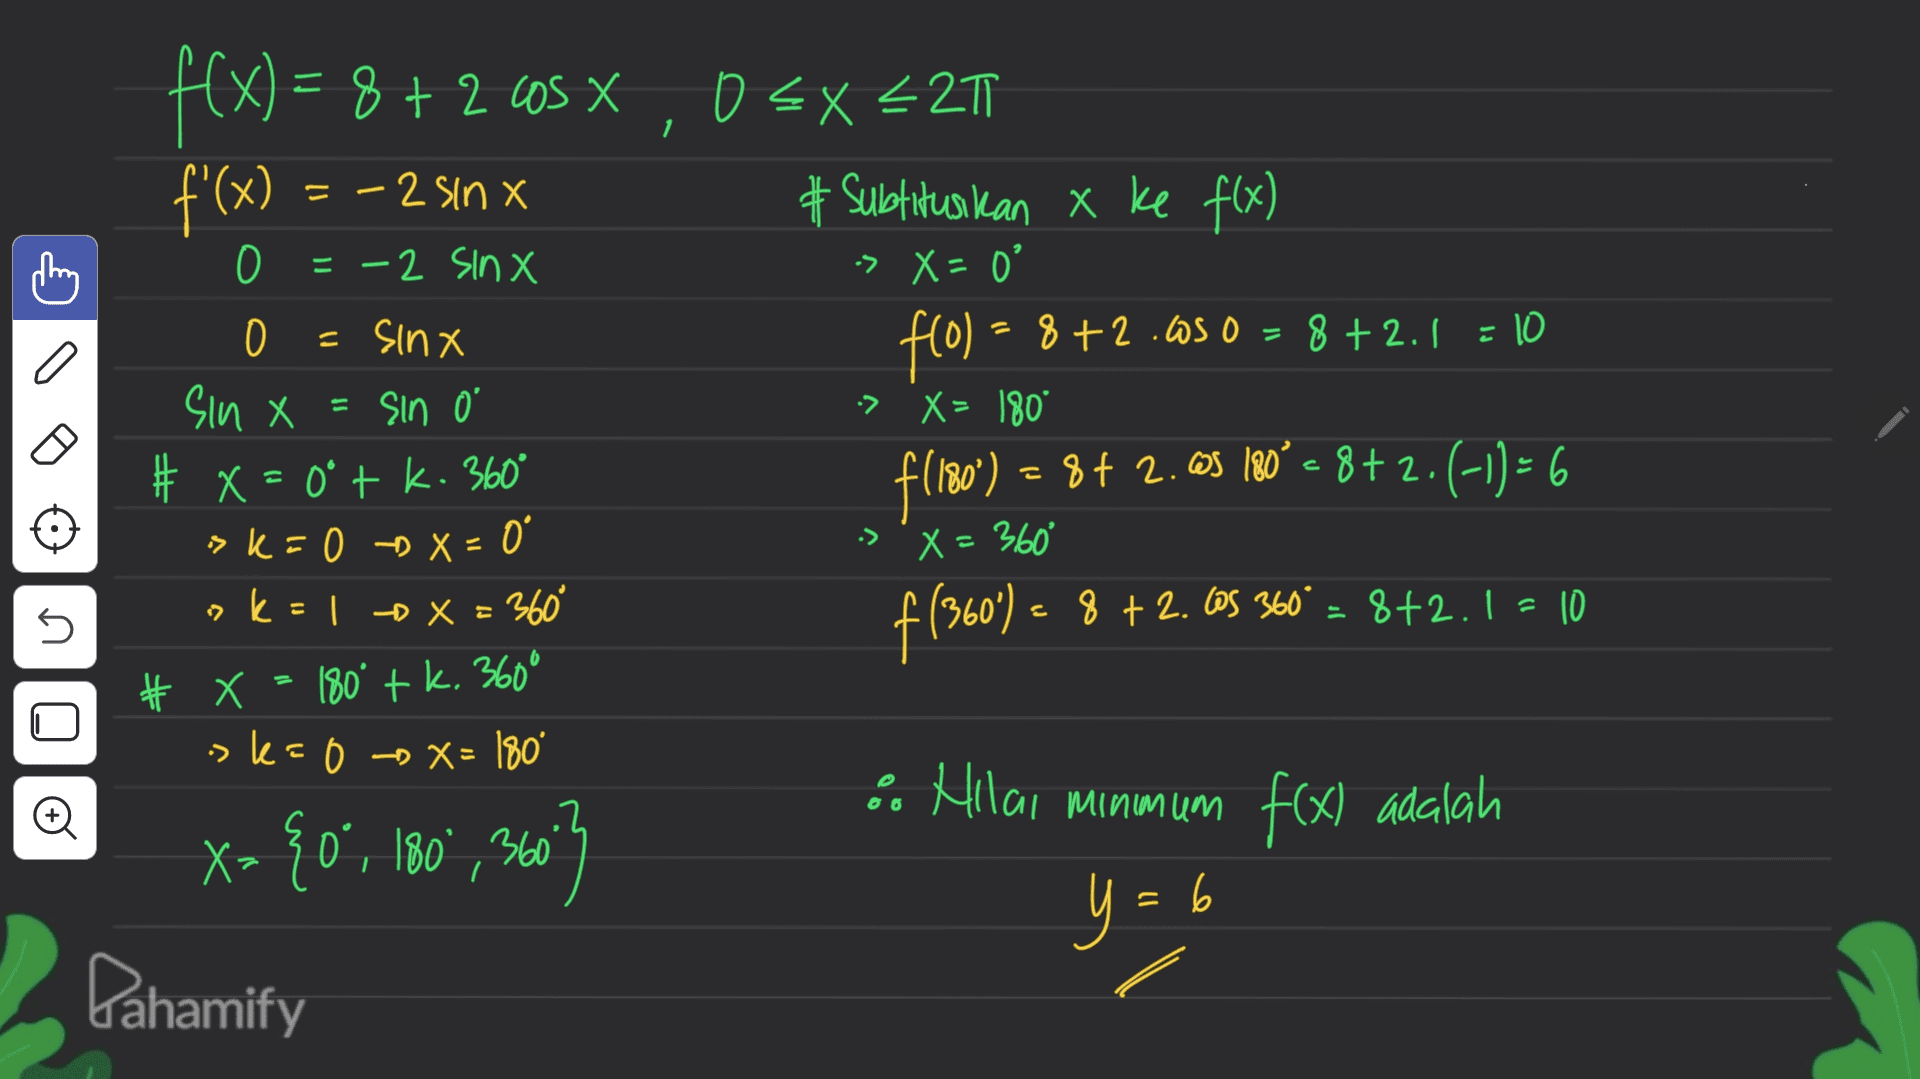 f(x) = 8 + 2 cos x , 0 ≤ x ≤ 2π
f'(x) = -2 sin x
0 = -2 sin x
0 = sin x
sin x = sin 0°
# x = 0° + k. 360°
k = 0 → x = 0°
k = 1 → x = 360°
# x = 180° + k. 360°
k = 0 → x = 180°
x = {0°, 180°, 360°}
# Subtitusikan x ke f(x)
x = 0°
f(0) = 8 + 2 . cos 0 = 8 + 2.1 = 10
x = 180°
f(180°) = 8 + 2. cos 180° = 8 + 2. (-1) = 6
x = 360°
f(360°) = 8 + 2. cos 360° = 8 + 2. 1 = 10
∴ Nilai minimum f(x) adalah
y = 6
Pahamify